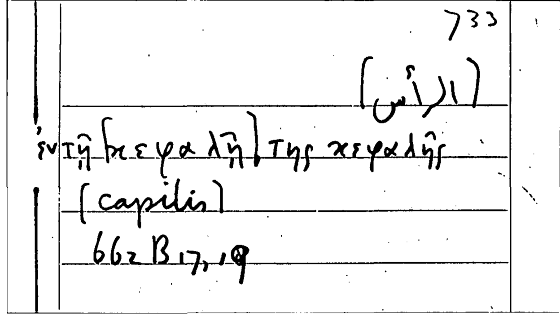 733
[الرأس]
ἐν τῇ [κεφαλῇ] τῆς κεφαλῆς
[capitis]
662 B 17, 19